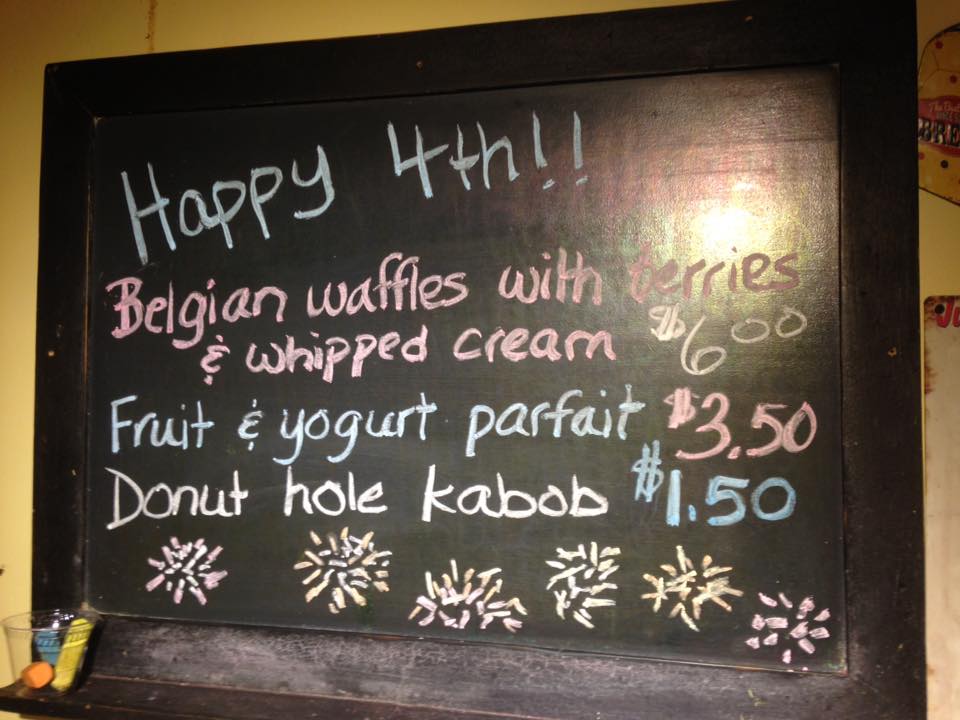 Happy 4th!!
Belgian waffles with berries
& whipped cream $6.00
Fruit & yogurt parfait $3.50
Donut hole kabob $1.50